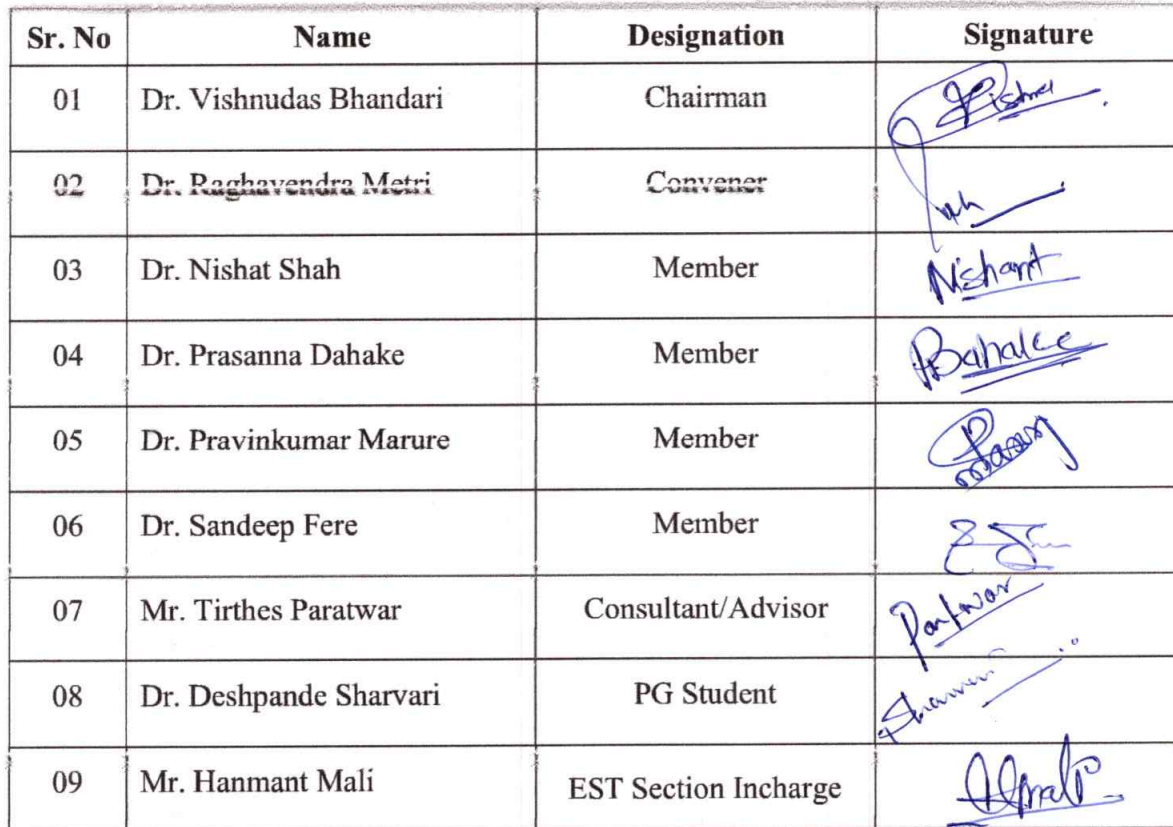 Sr. No Name Designation Signature
01 Dr. Vishnudas Bhandari Chairman Vishnu
02 Dr. Raghavendra Metri Convener
03 Dr. Nishat Shah Member Nishant
04 Dr. Prasanna Dahake Member
05 Dr. Pravinkumar Marure Member
06 Dr. Sandeep Fere Member
07 Mr. Tirthes Paratwar Consultant/Advisor
08 Dr. Deshpande Sharvari PG Student
09 Mr. Hanmant Mali EST Section Incharge